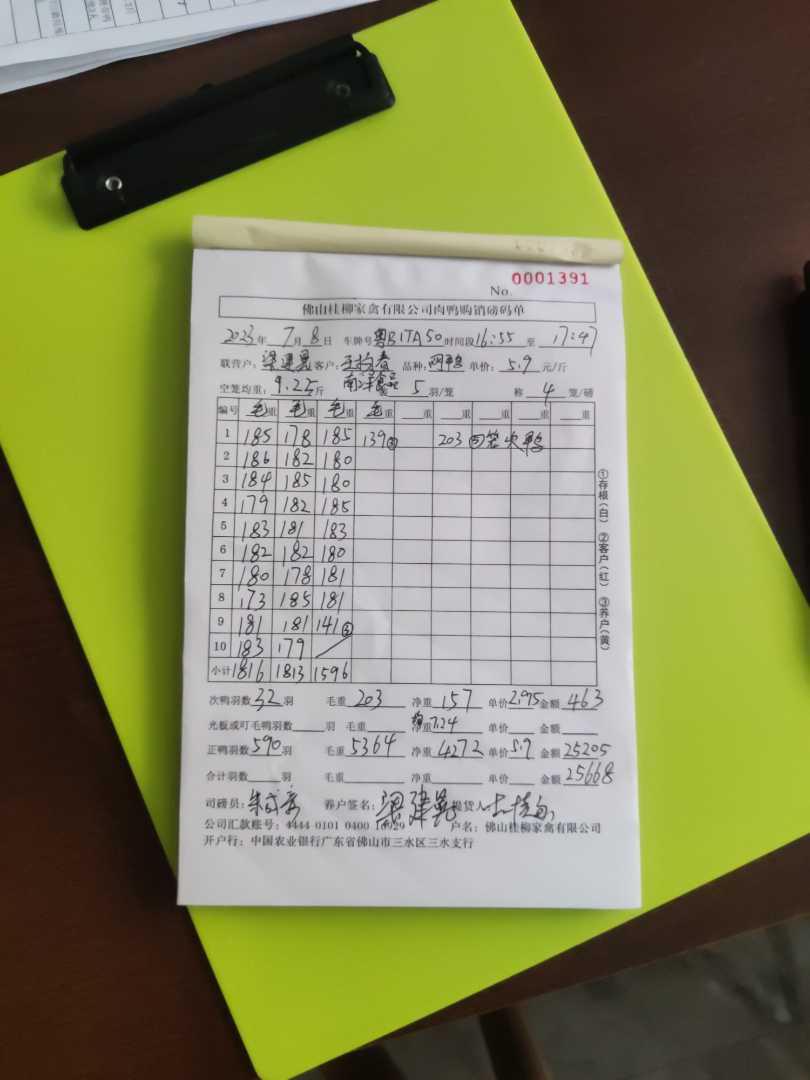 No. 0001391
佛山桂柳家禽有限公司肉鸭购销磅码单
2023年 7月 8日 车牌号 粤B1TA50 时间段 16:55 至 17:47
联营户: 梁建晃 客户: 品种: 单价: 5.9 元/斤
空笼均重: 9.25斤 5 羽/笼 称 4 笼/磅
编号 毛重 毛重 毛重 毛重 重 重 重 重 重
1 185 178 185 139③ 203 笼次鸭
2 186 182 180
3 184 185 180
4 179 182 185
5 183 181 183
6 182 182 180
7 180 178 181
8 173 185 181
9 181 181 141
10 183 179
小计 1816 1813 1596
①存根(白) ②客户(红) ③养户(黄)
次鸭羽数 32 羽 毛重 203 净重 157 单价 2.95 金额 463
光板或叮毛鸭羽数 羽 毛重 净重 单价 金额
均7.24
正鸭羽数 590 羽 毛重 5364 净重 4272 单价 5.9 金额 25205
合计羽数 羽 毛重 净重 单价 金额 25668
司磅员: 养户签名: 梁建晃 提货人
公司汇款账号: 4444 0101 0400 户名: 佛山桂柳家禽有限公司
开户行: 中国农业银行广东省佛山市三水区三水支行